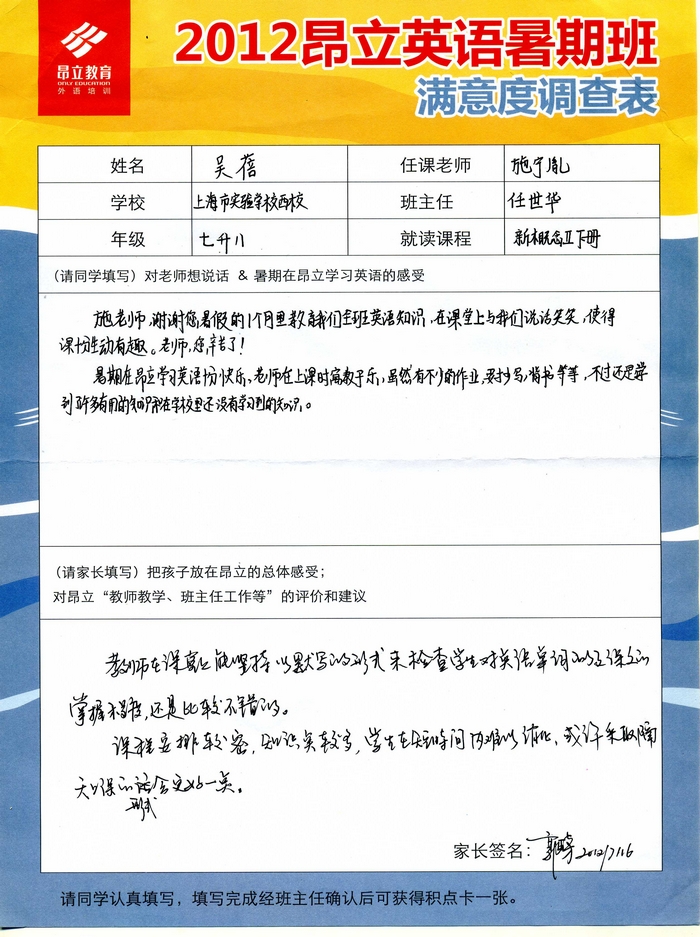 昂立教育
ONLY EDUCATION
外语培训
2012昂立英语暑期班
满意度调查表
姓名 吴蓓 任课老师 施宇胤
学校 上海市实验学校西校 班主任 任世华
年级 七升八 就读课程 新概念II下册
(请同学填写)对老师想说话 & 暑期在昂立学习英语的感受
施老师,谢谢您暑假的1个月里教育我们全班英语知识,在课堂上与我们说说笑笑,使得
课十分生动有趣。老师,您辛苦了!
暑期在昂立学习英语十分快乐,老师在上课时寓教于乐,虽然有不少的作业,要抄写,背书等等,不过还是学
到许多有用的知识和在学校里还没有学习到的知识。
(请家长填写)把孩子放在昂立的总体感受;
对昂立“教师教学、班主任工作等”的评价和建议
教师在课堂上能坚持以默写的形式来检查学生对英语单词以及课文的
掌握程度,还是比较不错的。
课程安排较密,知识点较多,学生在短时间内难以消化,或许采取隔
天上课的形式会更好一点。
家长签名: 2012/7/16
请同学认真填写,填写完成经班主任确认后可获得积点卡一张。